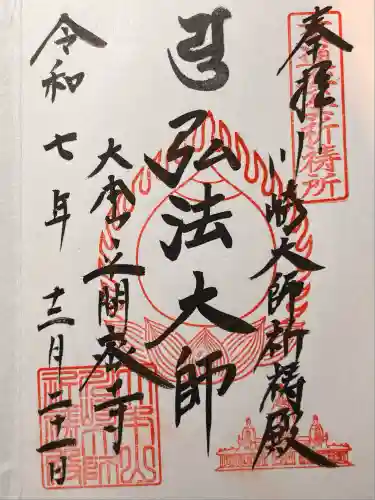 奉拝
川崎大師祈祷殿
弘法大師
大本山平間密寺
令和七年十二月二十一日
祈祷所